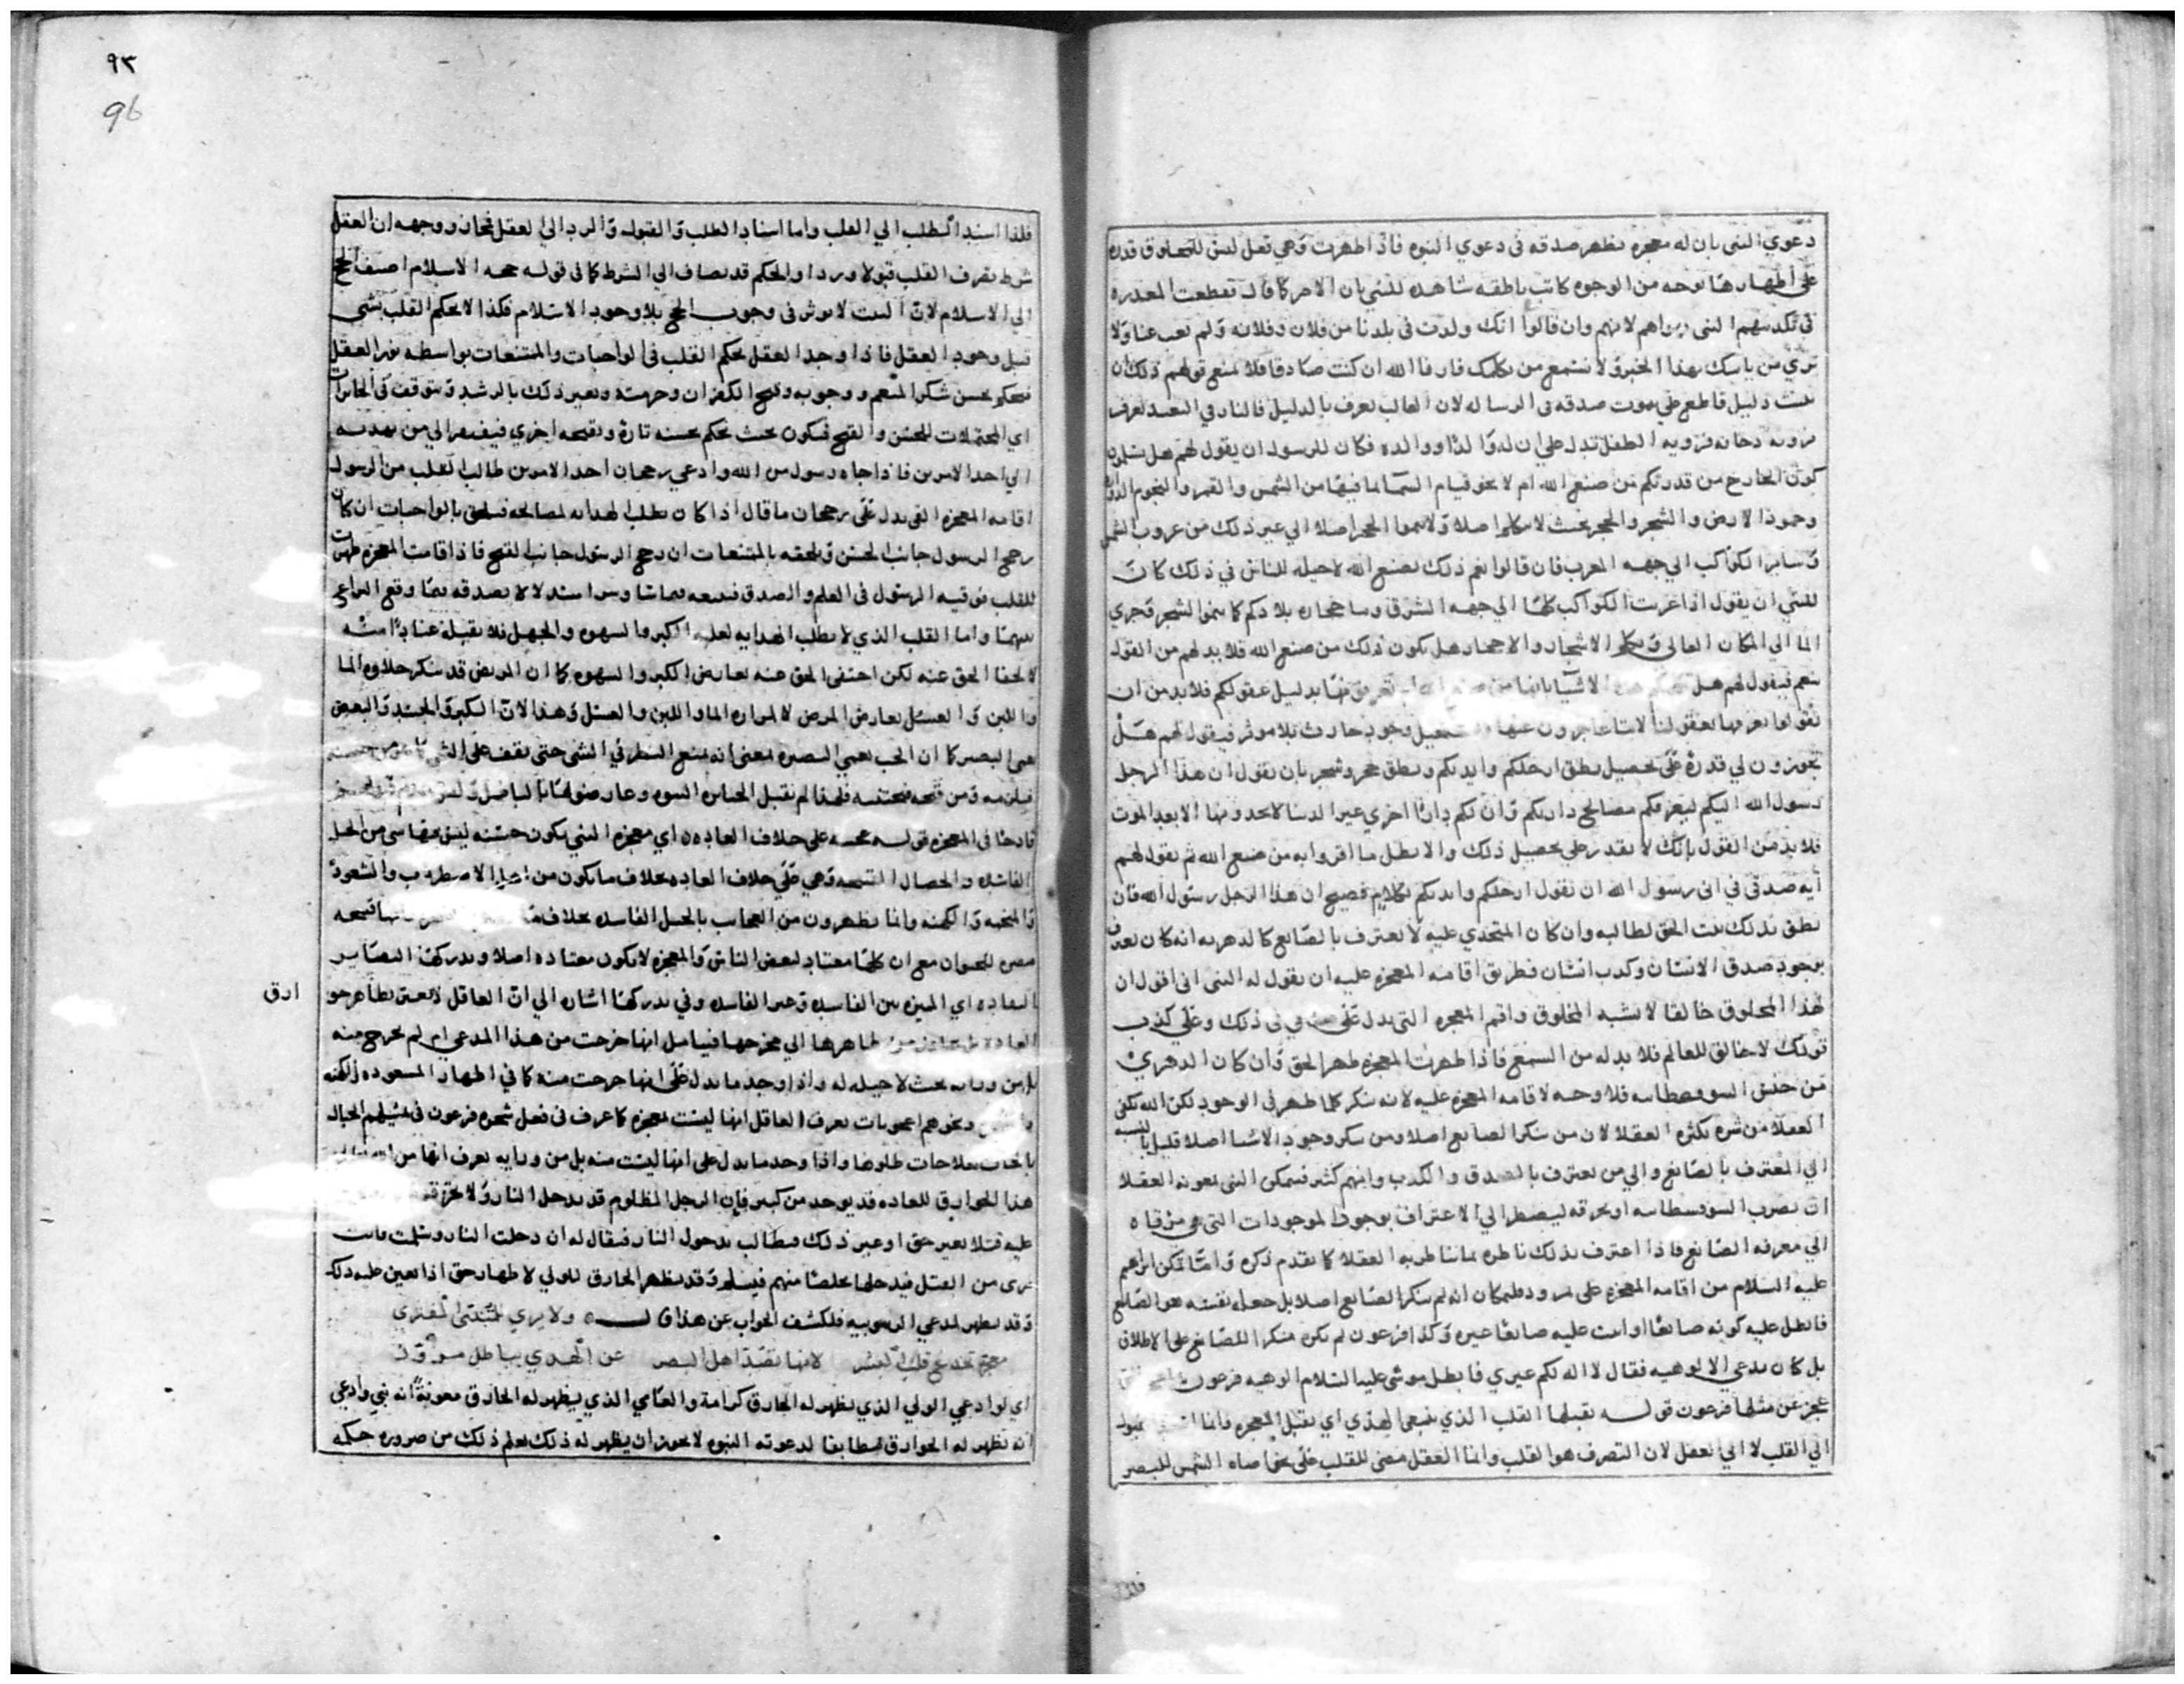 دعوي النبى بان له معجزه يظهر صدقه فى دعوي النبوه فاذا ظهرت وهي فعل ليس للمخلوق قدره
على اظهارها بوجه من الوجوه كانت ناطقه شاهده للنبي بان الامر كما قال فقطعت المعذره
فى تكذيبهم النبى وان قالوا انك ولدت فى بلدنا من فلان وفلانه ولم تغب عنا ولا
نري من ياتيك بهذا الخبر ولا نستمع من يكلمك فارنا الله ان كنت صادقا فلا يمنع قولهم ذلك ان
يثبت دليل قاطع على ثبوت صدقه فى الرساله لان الغايب يعرف بالدليل فالنار في البعد تعرف
برويه دخانه فرويه الطفل تدل علي ان له والدا ووالده فكان للرسول ان يقول لهم هل
كون الخارج من قدرتكم من صنع الله ام لا نحو قيام السما بما فيها من الشمس والقمر والنجوم
وجود الارض والشجر والحجر بحث لا يتكلم اصلا ولا ينموا الحجر اصلا الي غير ذلك من غروب الشمس
وساير الكواكب الي جهه المغرب فان قالوا نعم ذلك بصنع الله لا حيله للناس في ذلك كان
للنبي ان يقول اذا غربت الكواكب كلها الي جهه الشرق وسا حجاره بلادكم كما ينموا الشجر وجري
الما الي المكان العالى وتكلم الاشجار والاحجار هل يكون ذلك من صنع الله فلا بد لهم من القول
نعم فيقول لهم هل الاشيا بانها من بدليل عقولكم فلا بد من ان
يقولوا نعرفها بعقولنا لاننا عاجزون عنها وجود حادث بلا موثر فيقول لهم هل
تجوزون لي قدرة على تحصيل نطق ارجلكم وايديكم ونطق حجر وشجر بان يقول ان هذا الرجل
رسول الله اليكم ليعرفكم مصالح داركم وان لكم دارا اخري غير الدنيا لا تجدونها الا بعد الموت
فلا بد من القول بانك لا تقدر على تحصيل ذلك والا بطل ما اقروا به من صنع الله ثم يقول لهم
آيه صدقي في انى رسول الله ان تقول ارجلكم وايديكم بكلام فصيح ان هذا الرجل رسول الله فان
نطق بذلك ثبت الحق لطالبه وان كان المتحدي عليه لا يعترف بالصانع كالدهريه انه كان يعرف
بوجود صدق الانسان وكذب انسان فطريق اقامه المعجزه عليه ان يقول له النبى انى اقول ان
لهذا المخلوق خالقا لا يشبه المخلوق واقيم المعجزه التى تدل على صدقي فى ذلك وعلى كذب
قولك لا خالق للعالم فلا بد له من السمع فاذا ظهرت المعجزه ظهر الحق وان كان الدهري
من جنس السوفسطاييه فلا وجه لاقامه المعجزه عليه لانه ينكر كلما ظهر فى الوجود لكن الله كفى
العقلا من شره بكثره العقلا لان من ينكر الصانع اصلا ومن ينكر وجود الاشيا اصلا قليل بالنسبه
الي المعترف بالصانع والي من يعترف بالصدق والكذب وانهم كثير فيمكن النبى بمعونه العقلا
ان يضرب السوفسطاييه او يحرقه ليضطر الي الاعتراف بوجود الموجودات التى هى مرقاه
الي معرفه الصانع فاذا اعترف بذلك ناظره بما يناظر به العقلا كما تقدم ذكره وانما تمكن ابراهيم
عليه السلام من اقامه المعجزه على نمرود لانه لم ينكر الصانع اصلا بل جعل نفسه هو الصانع
فابطل عليه كونه صانعا واثبت عليه صانعا غيره وكذا فرعون لم يكن منكرا للصانع على الاطلاق
بل كان يدعي الالوهيه فقال لا اله لكم غيري فابطل موسى عليه السلام الوهيه فرعون
عجز عن مثلها فرعون قوله يقبلها القلب الذي ينبغي الهدي اي يقبل المعجزه وانما
الي القلب لا الي العقل لان المتصرف هو القلب وانما العقل مضي للقلب على نحو اضاه الشمس للبصر
٩٣
96
فلذا اسند الطلب الي القلب واما اسناد الطلب والقبول والرد الي العقل فمجاز ووجهه ان العقل
شرط تصرف القلب قبولا وردا والحكم قد يضاف الي الشرط كما فى قوله حجه الاسلام اضيف الحج
الى الاسلام لان البيت لا يوثر فى وجوب الحج بلا وجود الاسلام فكذا لا يحكم القلب بشى
قبل وجود العقل فاذا وجد العقل يحكم القلب فى الواجبات والممتنعات بواسطه نور العقل
فيحكم بحسن شكر المنعم ووجوبه وقبح الكفران وحرمته وبغير ذلك بالرشد ويتوقف فى الجايزات
اي المحتملات للحسن والقبح فيكون بحث يحكم بحسنه تارة وبقبحه اخري فيفتقر الي من يهديه
الي احد الامرين فاذا جاه رسول من الله وادعي رجحان احد الامرين طالب القلب من الرسول
اقامه المعجزه التى تدل على رجحان ما قال اذا كان يطلب الهدايه لمصالحه فيلحق بالواجبات ان كان
رجح الرسول جانب الحسن ويلحقه بالممتنعات ان رجح الرسول جانب القبح فاذا اقامت المعجزه ظهرت
للقلب فوقيه الرسول فى العلم والصدق فيتبعه استدلالا بصدقه بما وقع النزاع
بينهما واما القلب الذي لا يطلب الهدايه لغلبه الكبر والشهوه والجهل فلا يقبله عنادا منه
لا لخفا الحق عنه لكن اختفى الحق عنه بعارض الكبر والشهوه كما ان المريض قد ينكر حلاوه الما
واللبن والعسل بعارض المرض لا لمراره الما واللبن والعسل وهذا لان الكبر والحسد والبغض
يعمى البصر كما ان الحب يعمي البصيره بمعنى انه يمنع النظر في الشى حتى يقف على الشى
قادحا فى المعجزه قوله حسنه على خلاف العاده اي معجزه النبي تكون حسنه ليس فيها شى من الحيل
الفاسده والخصال القبيحه وهي على خلاف العاده بخلاف ما يكون من والشعوذ
والكهنه وانما يظهرون من العجايب بالحيل الفاسده بخلاف
مضره للحيوان مع ان كلها معتاد لبعض الناس والمعجزه لا تكون معتاده اصلا ويدركها البصاير
النقاده اي المميزه بين الفاسده وغير الفاسده وفي يدركها اشاره الي ان العاقل لا يغتر بظاهر خو
ارق
العاده ظاهرها الي مخرجها فيتامل انها خرجت من هذا المدعي ام لم تخرج منه
بل من ورايه بحث لا حيله له واذا وجد ما يدل على انها خرجت منه كما في اظهار الشعوذه والكهنه
ونحوهم اعجوبات يعرف العاقل انها ليست معجزه كما عرف فى فعل سحره فرعون فى تخييلهم الحبال
واذا وجد ما يدل على انها ليست منه بل من ورايه يعرف انها من
هذا الخوارق للعاده قد يوجد من كبير فان الرجل المظلوم قد يدخل النار ولا
عليه قتلا بغير حق او غير ذلك فيطالب بدخول النار فيقال له ان دخلت النار وسلمت فانت
بري من القتل فيدخلها مخلصا منهم فيسلم وقد يظهر الخارق للولي لاظهار حق اذا تعين عليه ذلك
وقد يظهر لمدعي الربوبيه فلكشف الجواب عن هذا قال ولا يري للمتنبى المفتري
معجزة تخدع قلب البشر لانها تصد اهل البصر عن الهدي بباطل مزور
اي لو ادعي الولي الذي يظهر له الخارق كرامة والعامي الذي يظهر له الخارق معونة انه نبي وادعي
انه يظهر له الخوارق مطابقا لدعوته النبوه لا يجوز ان يظهر له ذلك يعلم ذلك من ضروره حكمه